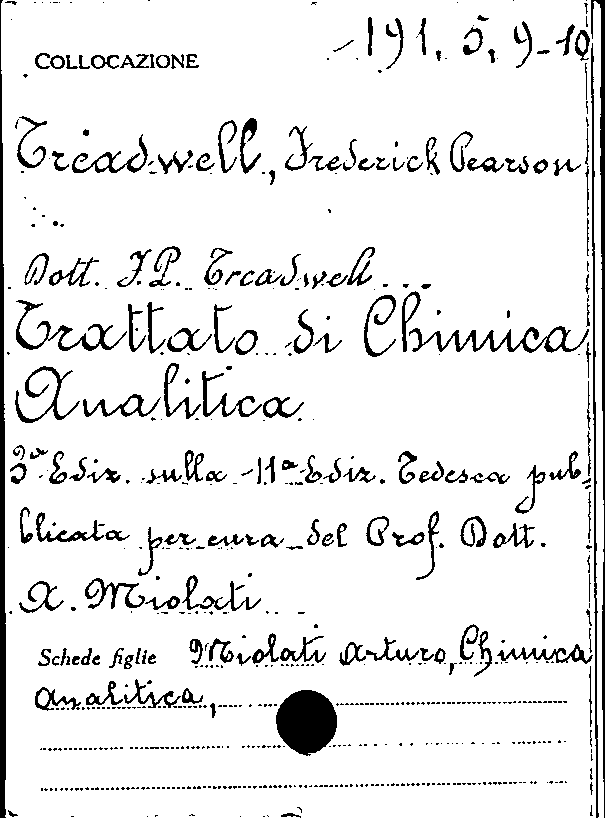 COLLOCAZIONE 191. 5. 9-10
Treadwell, Frederick Pearson
Dott. F.P. Treadwell...
Trattato di Chimica
Analitica
3ª Ediz. sulla 11ª Ediz. Tedesca pub-
blicata per cura del Prof. Dott.
A. Miolati
Schede figlie Miolati Arturo, Chimica
Analitica,